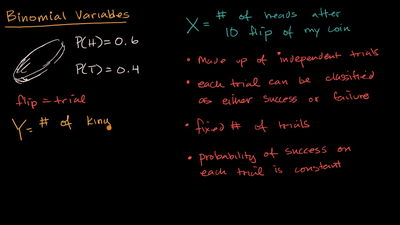 Binomial Variables
P(H) = 0.6
P(T) = 0.4
flip = trial
Y = # of king
X = # of heads after
10 flip of my coin
• Made up of independent trials
• each trial can be classified
as either success or failure
• fixed # of trials
• probability of success on
each trial is constant